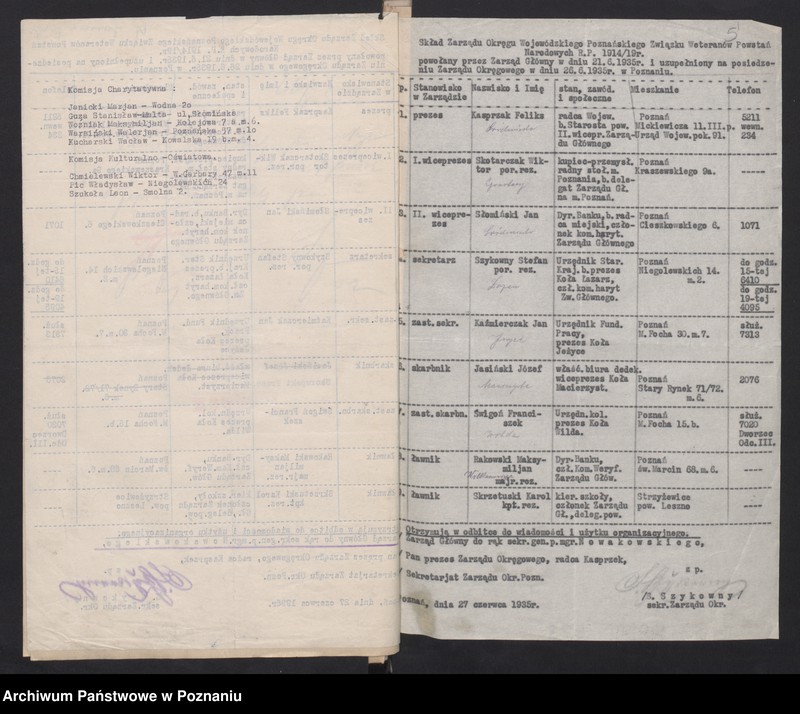 Komisja Charytatywna :
Janicki Marjan - Wodna 20
Guza Stanisław-Malta - ul.Słomińska
Woźniak Maksymiljan - Kolejowa 7 a m.6.
Warmiński Walerjan - Poznańska 37 m.10
Kucharski Wacław - Kowalska 19 b.m. 4.
Komisja Kulturalno-Oświatowa.
Chmielewski Wiktor - W.Garbary 47 m.11
Pic Władysław - Niegolewskich 24
Szukała Leon - Smolna 2.
5
Skład Zarządu Okręgu Wojewódzkiego Poznańskiego Związku Weteranów Powstań
Narodowych R.P. 1914/19r.
powołany przez Zarząd Główny w dniu 21.6.1935r. i uzupełniony na posiedze-
niu Zarządu Okręgowego w dniu 26.6.1935r. w Poznaniu.
p. Stanowisko w Zarządzie Nazwisko i Imię stan, zawód. i społeczne Mieszkanie Telefon
1. prezes Kasprzak Feliks radca Wojew. b.Starosta pow. II.wicepr.Zarzą- du Głównego Poznań Mickiewicza 11.III.p. Urząd Wojew.pok.91. 5211 wewn. 234
2. I.wiceprezes Skotarczak Wik- tor por.rez. kupiec-przemysł. radny stoł.m. Poznania,b.dele- gat Zarządu Gł. na m.Poznań. Poznań Kraszewskiego 9a. ----
3. II. wicepre- zes Słomiński Jan Dyr.Banku,b.rad- ca miejski,czło- nek kom.haryt. Zarządu Głównego Poznań Cieszkowskiego 6. 1071
4. sekretarz Szykowny Stefan por. rez. Urzędnik Star. Kraj.b.prezes Koła Łazarz, czł.kom.haryt Zw.Głównego. Poznań Niegolewskich 14. m.2. do godz. 15-tej 6410 do godz. 19-tej 4095
5. zast.sekr. Kaźmierczak Jan Urzędnik Fund. Pracy, prezes Koła Jeżyce Poznań M.Focha 30.m.7. służ. 7313
6. skarbnik Jasiński Józef właść.biura dedek. wiceprezes Koła Macierzyst. Poznań Stary Rynek 71/72. m.6. 2076
7. zast.skarbn. Świgoń Franci- szek Urzędn.kol. prezes Koła Wilda. Poznań M.Focha 15.b. służ. 7020 Dworzec Odc.III.
8. ławnik Rakowski Maksy- miljan majr.rez. Dyr.Banku, czł.Kom.Weryf. Zarządu Głów. Poznań św.Marcin 68.m.6. ----
9. ławnik Skrzetuski Karol kpt.rez. kier.szkoły, członek Zarządu Gł.,deleg.pow. Strzyżewice pow. Leszno ----
Otrzymują w odbitce do wiadomości i użytku organizacyjnego.
Zarząd Główny do rąk sekr.gen.p.mgr.Nowakowskiego,
Pan prezes Zarządu Okręgowego, radca Kasprzak,
Sekretarjat Zarządu Okr.Pozn.
z p.
/S. Szykowny/
sekr.Zarządu Okr.
Poznań, dnia 27 czerwca 1935r.
Archiwum Państwowe w Poznaniu